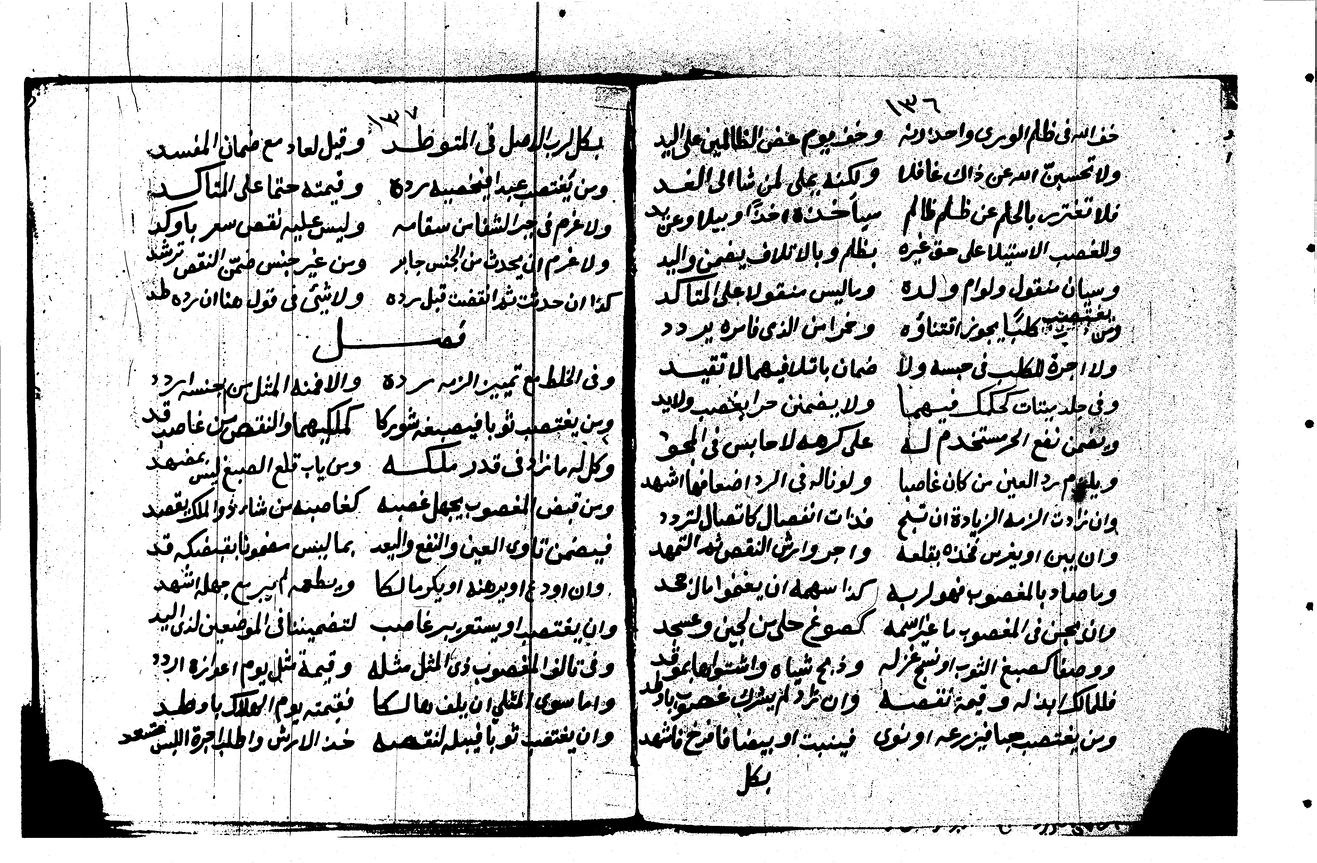 ١٣٦
خف الله في ظلم الورى واحذرنه وخف يوم عض الظالمين على اليد
ولا تحسبن الله عن ذاك غافلا ولكنه يملي لمن شا الى الغد
فلا تغترر بالحلم عن ظلم ظالم سيأخذه اخذا وبيلا وعن يد
وللغصب الاستيلا على حق غيره بظلم وبالاتلاف يضمن واليد
وسيان منقول ولو ام ولده وما ليس منقولا على المتاكد
ومن يغتصب كلبا يجوز اقتناؤه وخمرا من الذمي فامره يردد
ولا اجرة للكلب في حبسه ولا ضمان باتلافيهما لا تقيد
وفي جلد ميتات كحلك فيهما ولا يضمنن حرا بغصب ولا يد
ويضمن نفع الحر مستخدم له على كرهه لا حابس في المجود
ويلزم رد العين من كان غاصبا ولو ناله في الرد اضعافها اشهد
وان زادت الزمه الزيادة ان تبح فذات انفصال كاتصال لتردد
وان يبن او يغرس فخذه بقلعه واجر وارش النقص ثم التمهد
وما صاد بالمغصوب فهو لربه كذا سهمه ان يغنموا مال جحد
وان يجن في المغصوب ما غير اسمه كصوغ حلي من لجين وعسجد
ووصفا كصبغ الثوب او نسج غزله وذبح شياه واشتواها بموقد
فللمالك ابذله وقيمة نقصه وان زاد لم يشرك غصوب باوطد
ومن يغتصب حبا فيزرعه او نوى فينبت او بيضا فافرخ فاشهد
بكل
١٣٧
بكل لرب الاصل في المتوطد وقيل لعاد مع ضمان المفسد
ومن يغتصب عبدا فيخصيه رده وقيمته حتما على المتاكد
ولا غرم في جبر الشفا من سقامه وليس عليه نقص سعر باوكد
ولا غرم ان يحدث من الجنس جابر ومن غير جنس ضمن النقص ترشد
كذا ان حدثت ثم انقضت قبل رده ولا شئ في قول هنا ان رده طد
فصل
وفي الخلط مع تمييز الزمه رده والا فمنه المثل من جنسه اردد
ومن يغتصب ثوبا فيصبغه شوركا كملكيهما والنقص من غاصب قد
وكل له ما زاد في قدر ملكه ومن ياب قلع الصبغ ليس بمضهد
ومن قبض المغصوب يجهل غصبه كغاصبه من شاء ذو الملك يقصد
فيضمن تاوي العين والنفع واليد بما ليس مضمونا بقبضكه قد
وان اودع او يرهنه او يكر مالكا ويطعمه لم يبر مع جهله اشهد
وان يغتصب او يستعر بر غاصب لتضميننا في الموضعين لذي اليد
وفي تالف المغصوب ذي المثل مثله وقيمة مثل يوم اعوازه اردد
واما سوى المثلي ان يلف هالكا فقيمته يوم الهلاك باوطد
وان يغتصب ثوبا فيبله لنقصه خذ الارش واطلب اجرة اللبس